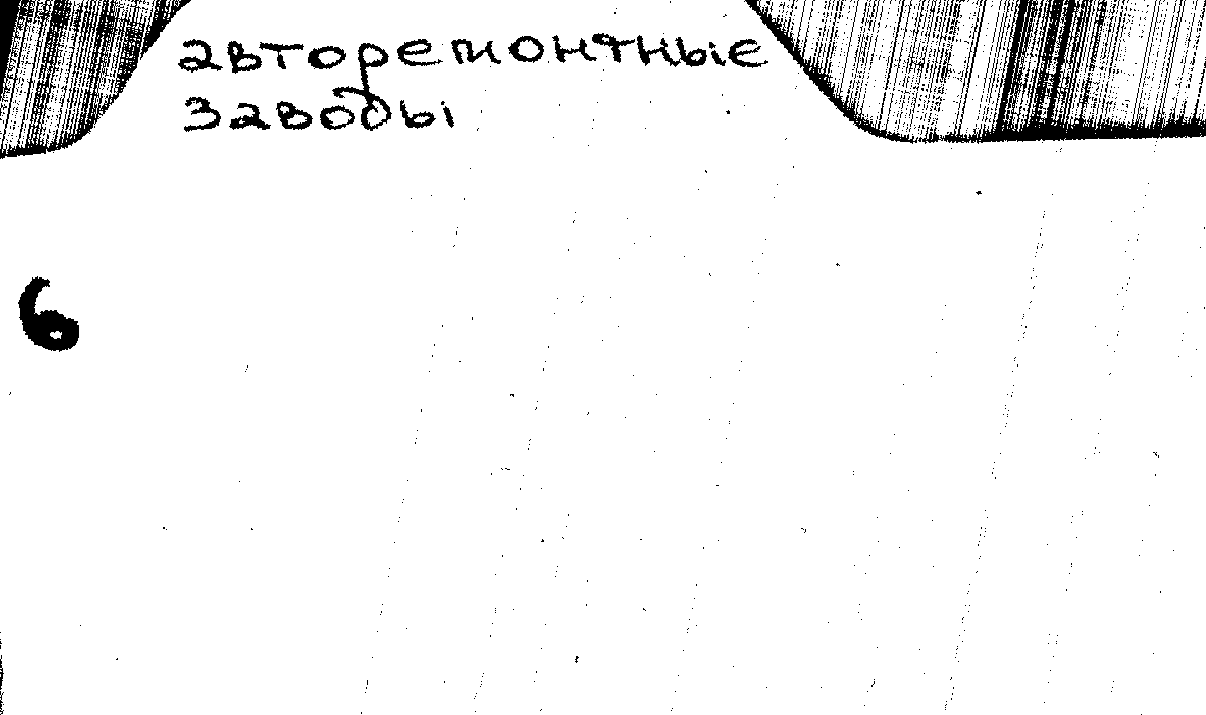 авторемонтные
заводы
6